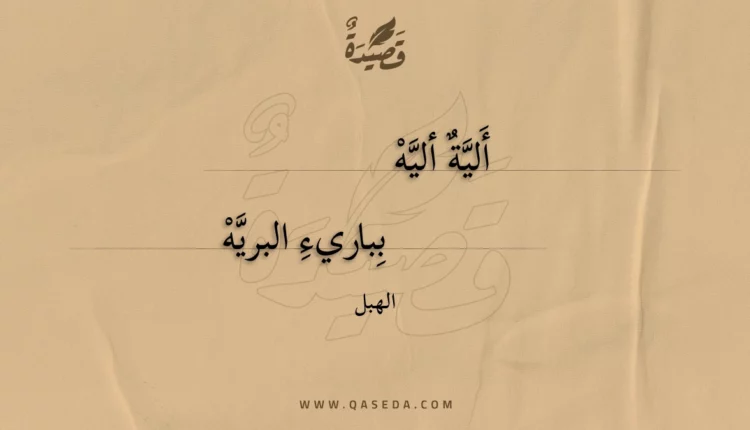 قَصِيدَةٌ
أَليَّةٌ أليَّهْ
بِباريءِ البريَّهْ
الهبل
WWW.QASEDA.COM